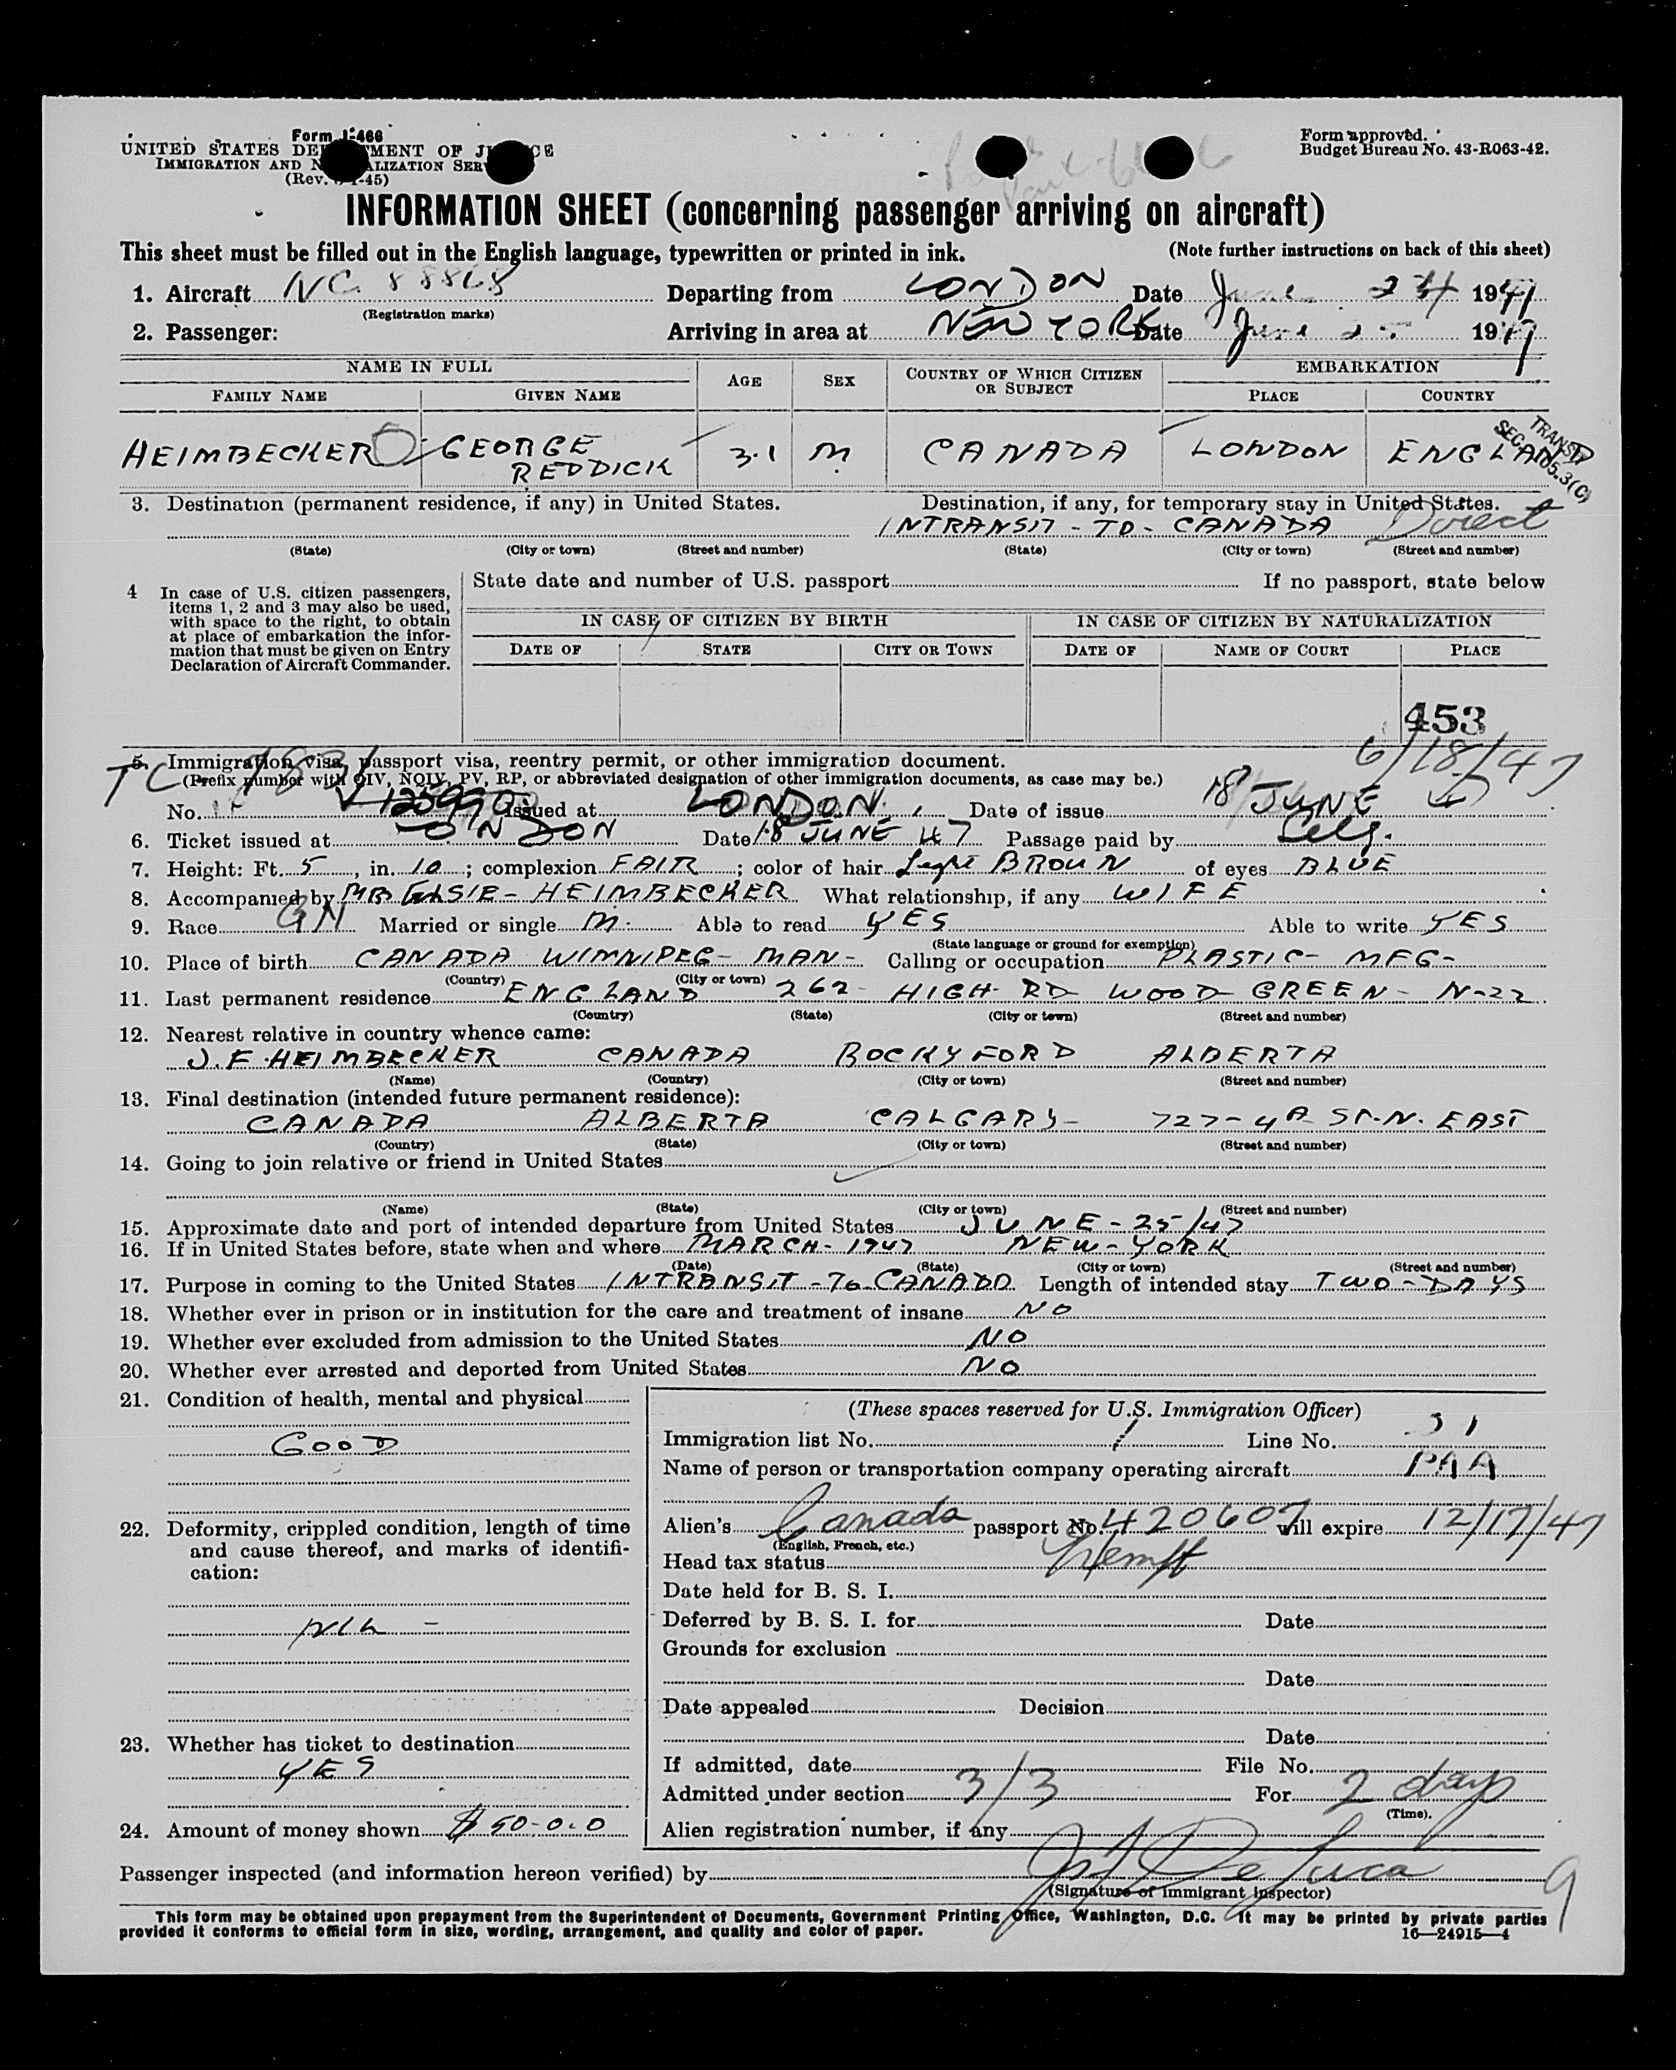 Form I-466
UNITED STATES DEPARTMENT OF JUSTICE
IMMIGRATION AND NATURALIZATION SERVICE
(Rev. 45)
Form approved.
Budget Bureau No. 43-R063-42.
INFORMATION SHEET (concerning passenger arriving on aircraft)
This sheet must be filled out in the English language, typewritten or printed in ink. (Note further instructions on back of this sheet)
1. Aircraft NC 88868 Departing from LONDON Date June 24 1947
(Registration marks)
2. Passenger: Arriving in area at NEW YORK Date June 25 1947
NAME IN FULL AGE SEX COUNTRY OF WHICH CITIZEN OR SUBJECT EMBARKATION
FAMILY NAME GIVEN NAME PLACE COUNTRY
HEIMBECKER GEORGE REDDICK 31 M CANADA LONDON ENGLAND
TRANSIT
SEC. 105.3(C)
3. Destination (permanent residence, if any) in United States. Destination, if any, for temporary stay in United States.
INTRANSIT - TO - CANADA Direct
(State) (City or town) (Street and number) (State) (City or town) (Street and number)
4 In case of U.S. citizen passengers, items 1, 2 and 3 may also be used, with space to the right, to obtain at place of embarkation the information that must be given on Entry Declaration of Aircraft Commander.
State date and number of U.S. passport If no passport, state below
IN CASE OF CITIZEN BY BIRTH IN CASE OF CITIZEN BY NATURALIZATION
DATE OF STATE CITY OR TOWN DATE OF NAME OF COURT PLACE
453
5. Immigration visa, passport visa, reentry permit, or other immigration document. 6/18/47
TC (Prefix number with QIV, NQIV, PV, RP, or abbreviated designation of other immigration documents, as case may be.)
No. Issued at LONDON Date of issue 18 JUNE 47
6. Ticket issued at LONDON Date 18 JUNE 47 Passage paid by Self.
7. Height: Ft. 5, in. 10; complexion FAIR; color of hair Light BROUN of eyes BLUE
8. Accompanied by ELSIE - HEIMBECKER What relationship, if any WIFE
9. Race GN Married or single M. Able to read YES Able to write YES
(State language or ground for exemption)
10. Place of birth CANADA WINNIPEG - MAN - Calling or occupation PLASTIC - MFG -
(Country) (City or town)
11. Last permanent residence ENGLAND 262 HIGH RD WOOD GREEN - N-22
(Country) (State) (City or town) (Street and number)
12. Nearest relative in country whence came:
J.F. HEIMBECKER CANADA ROCKYFORD ALBERTA
(Name) (Country) (City or town) (Street and number)
13. Final destination (intended future permanent residence):
CANADA ALBERTA CALGARY - 727 - 4A ST. N. EAST
(Country) (State) (City or town) (Street and number)
14. Going to join relative or friend in United States
(Name) (State) (City or town) (Street and number)
15. Approximate date and port of intended departure from United States JUNE - 25/47
16. If in United States before, state when and where MARCH - 1947 NEW - YORK
(Date) (State) (City or town) (Street and number)
17. Purpose in coming to the United States INTRANSIT - TO CANADA Length of intended stay TWO - DAYS
18. Whether ever in prison or in institution for the care and treatment of insane NO
19. Whether ever excluded from admission to the United States NO
20. Whether ever arrested and deported from United States NO
21. Condition of health, mental and physical
GOOD
22. Deformity, crippled condition, length of time and cause thereof, and marks of identification:
NIL -
23. Whether has ticket to destination
YES
24. Amount of money shown $ 50-0.0
(These spaces reserved for U.S. Immigration Officer)
Immigration list No. 1 Line No. 31
Name of person or transportation company operating aircraft PAA
Alien's Canada passport No. 420607 will expire 12/17/47
(English, French, etc.)
Head tax status Exempt
Date held for B. S. I.
Deferred by B. S. I. for Date
Grounds for exclusion
Date
Date appealed Decision
Date
If admitted, date File No.
Admitted under section 3/3 For 2 days
(Time).
Alien registration number, if any
Passenger inspected (and information hereon verified) by De Luca 9
(Signature of Immigrant Inspector)
This form may be obtained upon prepayment from the Superintendent of Documents, Government Printing Office, Washington, D.C. It may be printed by private parties
provided it conforms to official form in size, wording, arrangement, and quality and color of paper. 16—24915—4